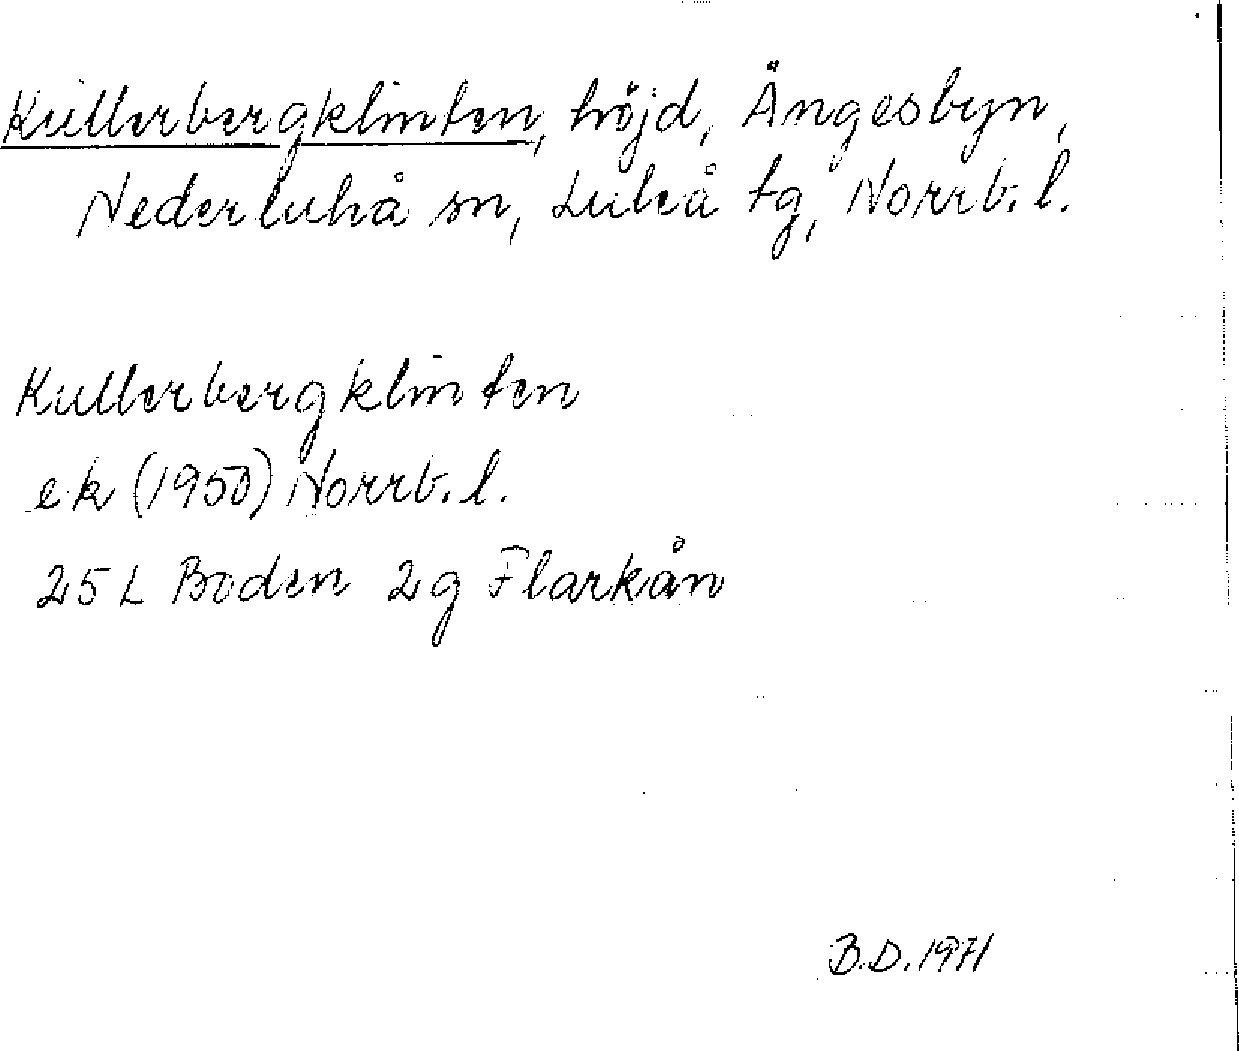 Kullerbergklinten, höjd, Ängesbyn,
Nederluleå sn, Luleå tg, Norrb. l.
Kullerbergklinten
ek (1950) Norrb. l.
25 L Boden 2g Flarkån
B.D. 1971